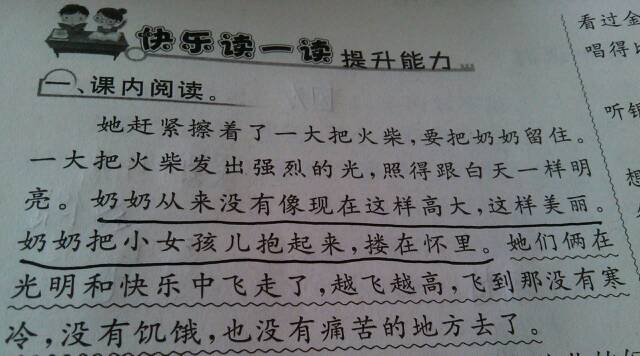 快乐读一读 提升能力
一、课内阅读。
她赶紧擦着了一大把火柴，要把奶奶留住。
一大把火柴发出强烈的光，照得跟白天一样明
亮。奶奶从来没有像现在这样高大，这样美丽。
奶奶把小女孩儿抱起来，搂在怀里。她们俩在
光明和快乐中飞走了，越飞越高，飞到那没有寒
冷，没有饥饿，也没有痛苦的地方去了。
看过金
唱得比
听钅
想